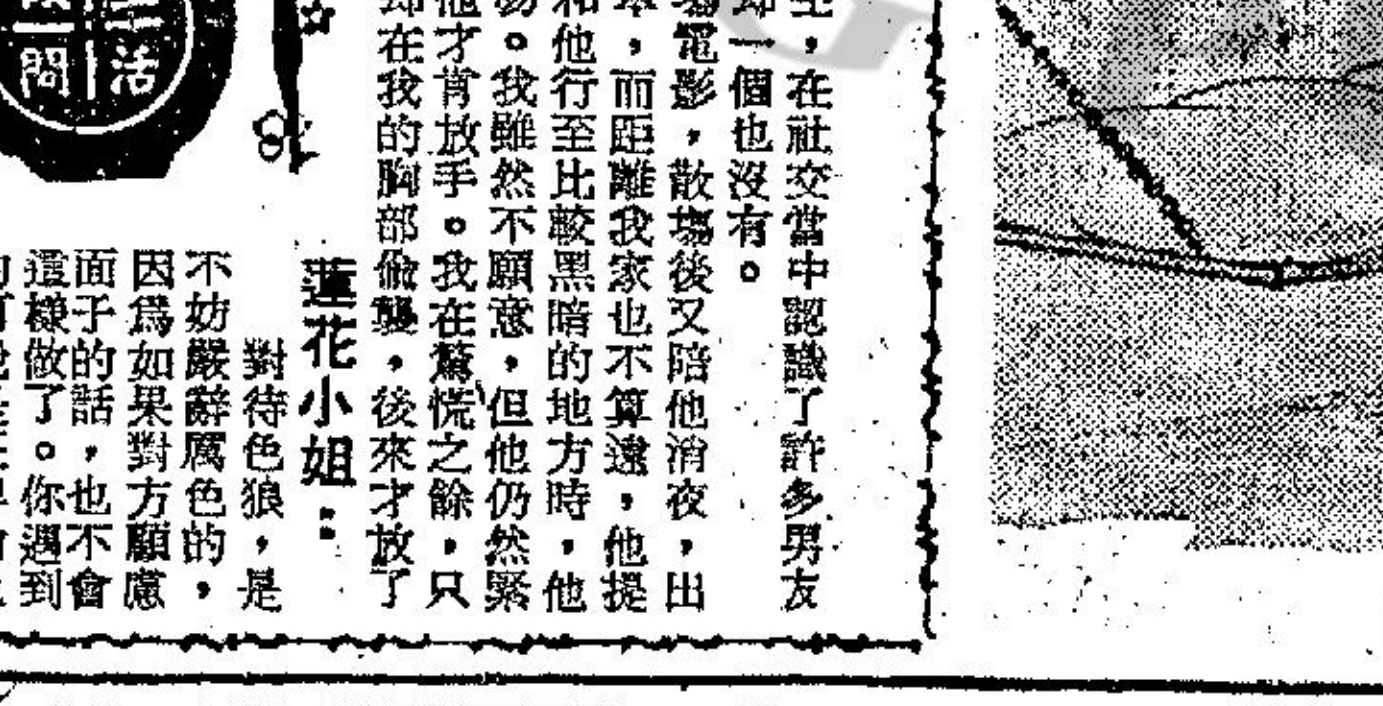 ，在社交當中認識了許多男友
一個也沒有。
場電影，散場後又陪他消夜，出
，而距離我家也不算遠，他提
和他行至比較黑暗的地方時，他
。我雖然不願意，但他仍然緊
他才肯放手。我在驚慌之餘，只
却在我的胸部偷襲，後來才放了
蓮花小姐：
對待色狼，是
不妨嚴辭厲色的，
因爲如果對方顧慮
面子的話，也不會
這樣做了。你遇到
活
問